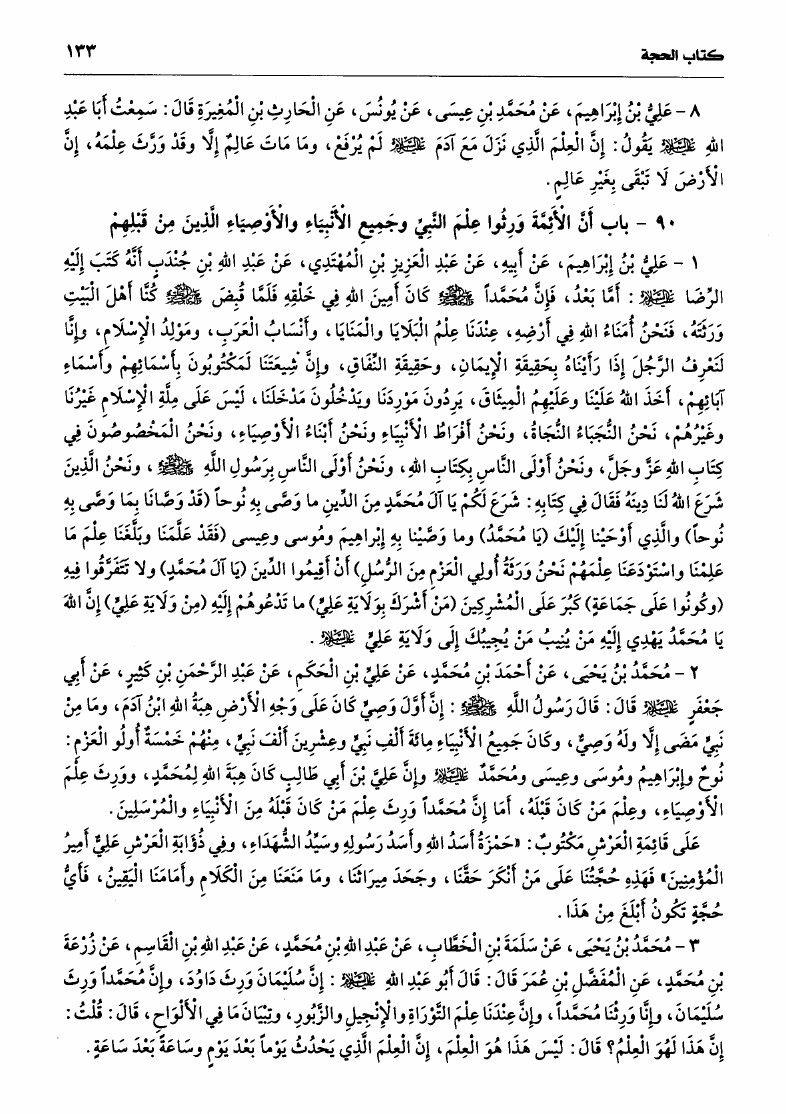 كتاب الحجة ١٣٣
٨ - عَلِيُّ بْنُ إِبْرَاهِيمَ، عَنْ مُحَمَّدِ بْنِ عِيسَى، عَنْ يُونُسَ، عَنِ الْحَارِثِ بْنِ الْمُغِيرَةِ قَالَ: سَمِعْتُ أَبَا عَبْدِ
اللهِ عَلَيْهِ السَّلَامُ يَقُولُ: إِنَّ الْعِلْمَ الَّذِي نَزَلَ مَعَ آدَمَ عَلَيْهِ السَّلَامُ لَمْ يُرْفَعْ، وَمَا مَاتَ عَالِمٌ إِلَّا وَقَدْ وَرَّثَ عِلْمَهُ، إِنَّ
الْأَرْضَ لَا تَبْقَى بِغَيْرِ عَالِمٍ.
٩٠ - باب أَنَّ الْأَئِمَّةَ وَرِثُوا عِلْمَ النَّبِيِّ وجَمِيعِ الْأَنْبِيَاءِ والْأَوْصِيَاءِ الَّذِينَ مِنْ قَبْلِهِمْ
١ - عَلِيُّ بْنُ إِبْرَاهِيمَ، عَنْ أَبِيهِ، عَنْ عَبْدِ الْعَزِيزِ بْنِ الْمُهْتَدِي، عَنْ عَبْدِ اللهِ بْنِ جُنْدَبٍ أَنَّهُ كَتَبَ إِلَيْهِ
الرِّضَا عَلَيْهِ السَّلَامُ: أَمَّا بَعْدُ، فَإِنَّ مُحَمَّداً ﷺ كَانَ أَمِينَ اللهِ فِي خَلْقِهِ فَلَمَّا قُبِضَ ﷺ كُنَّا أَهْلَ الْبَيْتِ
وَرَثَتَهُ، فَنَحْنُ أُمَنَاءُ اللهِ فِي أَرْضِهِ، عِنْدَنَا عِلْمُ الْبَلَايَا والْمَنَايَا، وأَنْسَابُ الْعَرَبِ، ومَوْلِدُ الْإِسْلَامِ، وإِنَّا
لَنَعْرِفُ الرَّجُلَ إِذَا رَأَيْنَاهُ بِحَقِيقَةِ الْإِيمَانِ، وحَقِيقَةِ النِّفَاقِ، وإِنَّ شِيعَتَنَا لَمَكْتُوبُونَ بِأَسْمَائِهِمْ وأَسْمَاءِ
آبَائِهِمْ، أَخَذَ اللهُ عَلَيْنَا وعَلَيْهِمُ الْمِيثَاقَ، يَرِدُونَ مَوْرِدَنَا ويَدْخُلُونَ مَدْخَلَنَا، لَيْسَ عَلَى مِلَّةِ الْإِسْلَامِ غَيْرُنَا
وغَيْرُهُمْ، نَحْنُ النُّجَبَاءُ النُّجَاةُ، ونَحْنُ أَفْرَاطُ الْأَنْبِيَاءِ ونَحْنُ أَبْنَاءُ الْأَوْصِيَاءِ، ونَحْنُ الْمَخْصُوصُونَ فِي
كِتَابِ اللهِ عَزَّ وجَلَّ، ونَحْنُ أَوْلَى النَّاسِ بِكِتَابِ اللهِ، ونَحْنُ أَوْلَى النَّاسِ بِرَسُولِ اللَّهِ ﷺ، ونَحْنُ الَّذِينَ
شَرَعَ اللهُ لَنَا دِينَهُ فَقَالَ فِي كِتَابِهِ: شَرَعَ لَكُمْ يَا آلَ مُحَمَّدٍ مِنَ الدِّينِ ما وَصَّى بِهِ نُوحاً (قَدْ وَصَّانَا بِمَا وَصَّى بِهِ
نُوحاً) والَّذِي أَوْحَيْنا إِلَيْكَ (يَا مُحَمَّدُ) وما وَصَّيْنا بِهِ إِبْراهِيمَ ومُوسى وعِيسى (فَقَدْ عَلَّمَنَا وبَلَّغَنَا عِلْمَ مَا
عَلِمْنَا واسْتَوْدَعَنَا عِلْمَهُمْ نَحْنُ وَرَثَةُ أُولِي الْعَزْمِ مِنَ الرُّسُلِ) أَنْ أَقِيمُوا الدِّينَ (يَا آلَ مُحَمَّدٍ) ولا تَتَفَرَّقُوا فِيهِ
(وكُونُوا عَلَى جَمَاعَةٍ) كَبُرَ عَلَى الْمُشْرِكِينَ (مَنْ أَشْرَكَ بِوَلَايَةِ عَلِيٍّ) ما تَدْعُوهُمْ إِلَيْهِ (مِنْ وَلَايَةِ عَلِيٍّ) إِنَّ اللهَ
يَا مُحَمَّدُ يَهْدِي إِلَيْهِ مَنْ يُنِيبُ مَنْ يُجِيبُكَ إِلَى وَلَايَةِ عَلِيٍّ عَلَيْهِ السَّلَامُ.
٢ - مُحَمَّدُ بْنُ يَحْيَى، عَنْ أَحْمَدَ بْنِ مُحَمَّدٍ، عَنْ عَلِيِّ بْنِ الْحَكَمِ، عَنْ عَبْدِ الرَّحْمَنِ بْنِ كَثِيرٍ، عَنْ أَبِي
جَعْفَرٍ عَلَيْهِ السَّلَامُ قَالَ: قَالَ رَسُولُ اللَّهِ ﷺ: إِنَّ أَوَّلَ وَصِيٍّ كَانَ عَلَى وَجْهِ الْأَرْضِ هِبَةُ اللهِ ابْنُ آدَمَ، ومَا مِنْ
نَبِيٍّ مَضَى إِلَّا ولَهُ وَصِيٌّ، وكَانَ جَمِيعُ الْأَنْبِيَاءِ مِائَةَ أَلْفِ نَبِيٍّ وعِشْرِينَ أَلْفَ نَبِيٍّ، مِنْهُمْ خَمْسَةٌ أُولُو الْعَزْمِ:
نُوحٌ وإِبْرَاهِيمُ ومُوسَى وعِيسَى ومُحَمَّدٌ عَلَيْهِمُ السَّلَامُ وإِنَّ عَلِيَّ بْنَ أَبِي طَالِبٍ كَانَ هِبَةَ اللهِ لِمُحَمَّدٍ، ووَرِثَ عِلْمَ
الْأَوْصِيَاءِ، وعِلْمَ مَنْ كَانَ قَبْلَهُ، أَمَا إِنَّ مُحَمَّداً وَرِثَ عِلْمَ مَنْ كَانَ قَبْلَهُ مِنَ الْأَنْبِيَاءِ والْمُرْسَلِينَ.
عَلَى قَائِمَةِ الْعَرْشِ مَكْتُوبٌ: «حَمْزَةُ أَسَدُ اللهِ وأَسَدُ رَسُولِهِ وسَيِّدُ الشُّهَدَاءِ، وفِي ذُؤَابَةِ الْعَرْشِ عَلِيٌّ أَمِيرُ
الْمُؤْمِنِينَ» فَهَذِهِ حُجَّتُنَا عَلَى مَنْ أَنْكَرَ حَقَّنَا، وجَحَدَ مِيرَاثَنَا، ومَا مَنَعَنَا مِنَ الْكَلَامِ وأَمَامَنَا الْيَقِينُ، فَأَيُّ
حُجَّةٍ تَكُونُ أَبْلَغَ مِنْ هَذَا.
٣ - مُحَمَّدُ بْنُ يَحْيَى، عَنْ سَلَمَةَ بْنِ الْخَطَّابِ، عَنْ عَبْدِ اللهِ بْنِ مُحَمَّدٍ، عَنْ عَبْدِ اللهِ بْنِ الْقَاسِمِ، عَنْ زُرْعَةَ
بْنِ مُحَمَّدٍ، عَنِ الْمُفَضَّلِ بْنِ عُمَرَ قَالَ: قَالَ أَبُو عَبْدِ اللهِ عَلَيْهِ السَّلَامُ: إِنَّ سُلَيْمَانَ وَرِثَ دَاوُدَ، وإِنَّ مُحَمَّداً وَرِثَ
سُلَيْمَانَ، وإِنَّا وَرِثْنَا مُحَمَّداً، وإِنَّ عِنْدَنَا عِلْمَ التَّوْرَاةِ والْإِنْجِيلِ والزَّبُورِ، وتِبْيَانَ مَا فِي الْأَلْوَاحِ، قَالَ: قُلْتُ:
إِنَّ هَذَا لَهُوَ الْعِلْمُ؟ قَالَ: لَيْسَ هَذَا هُوَ الْعِلْمَ، إِنَّ الْعِلْمَ الَّذِي يَحْدُثُ يَوْماً بَعْدَ يَوْمٍ وسَاعَةً بَعْدَ سَاعَةٍ.